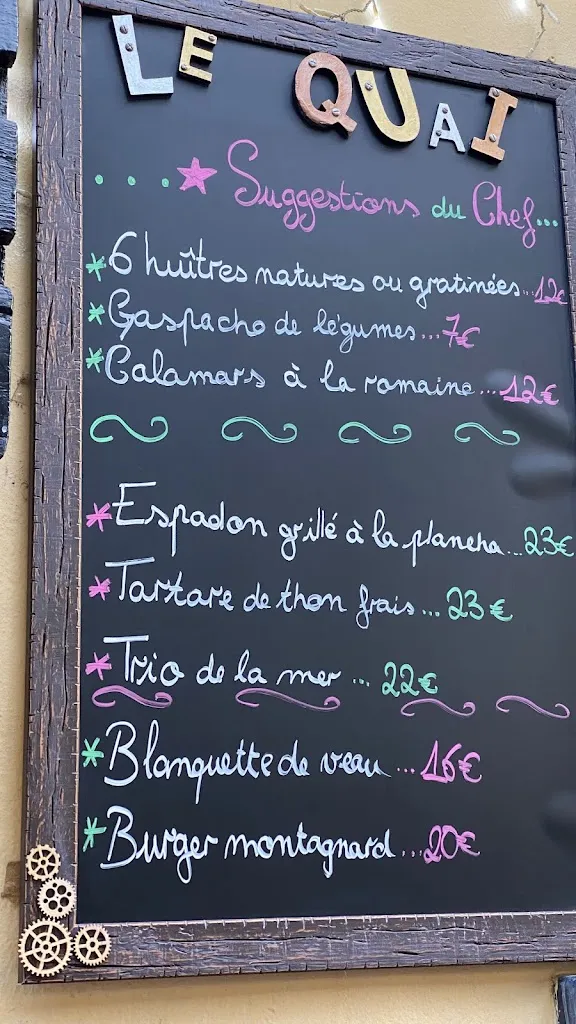 LE QUAI
...★ Suggestions du Chef...
* 6 huîtres natures ou gratinées...12€
* Gaspacho de légumes...7€
* Calamars à la romaine...12€
* Espadon grillé à la plancha...23€
* Tartare de thon frais...23€
* Trio de la mer...22€
* Blanquette de veau...16€
* Burger montagnard...20€